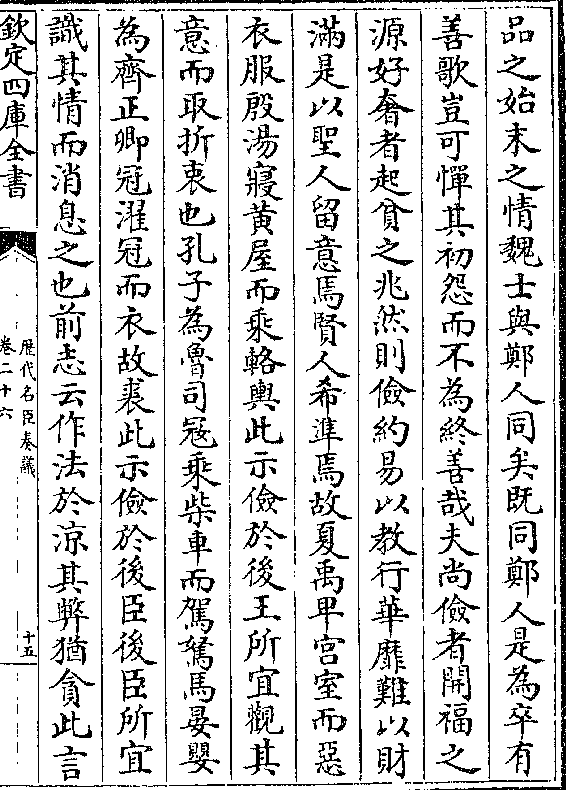 品之始末之情魏士與鄭人同矣既同鄭人是為卒有
善歌豈可憚其初怨而不為終善哉夫尚儉者開福之
源好奢者起貧之兆然則儉約易以教行華靡難以財
滿是以聖人留意焉賢人希準焉故夏禹卑宮室而惡
衣服殷湯寢黄屋而乘輅輿此示儉於後王所宜觀其
意而取折衷也孔子為魯司寇乘柴車而駕駑馬晏嬰
為齊正卿冠濯冠而衣故裘此示儉於後臣後臣所宜
識其情而消息之也前志云作法於涼其弊猶貪此言
欽定四庫全書
歷代名臣奏議
卷二十六
十五